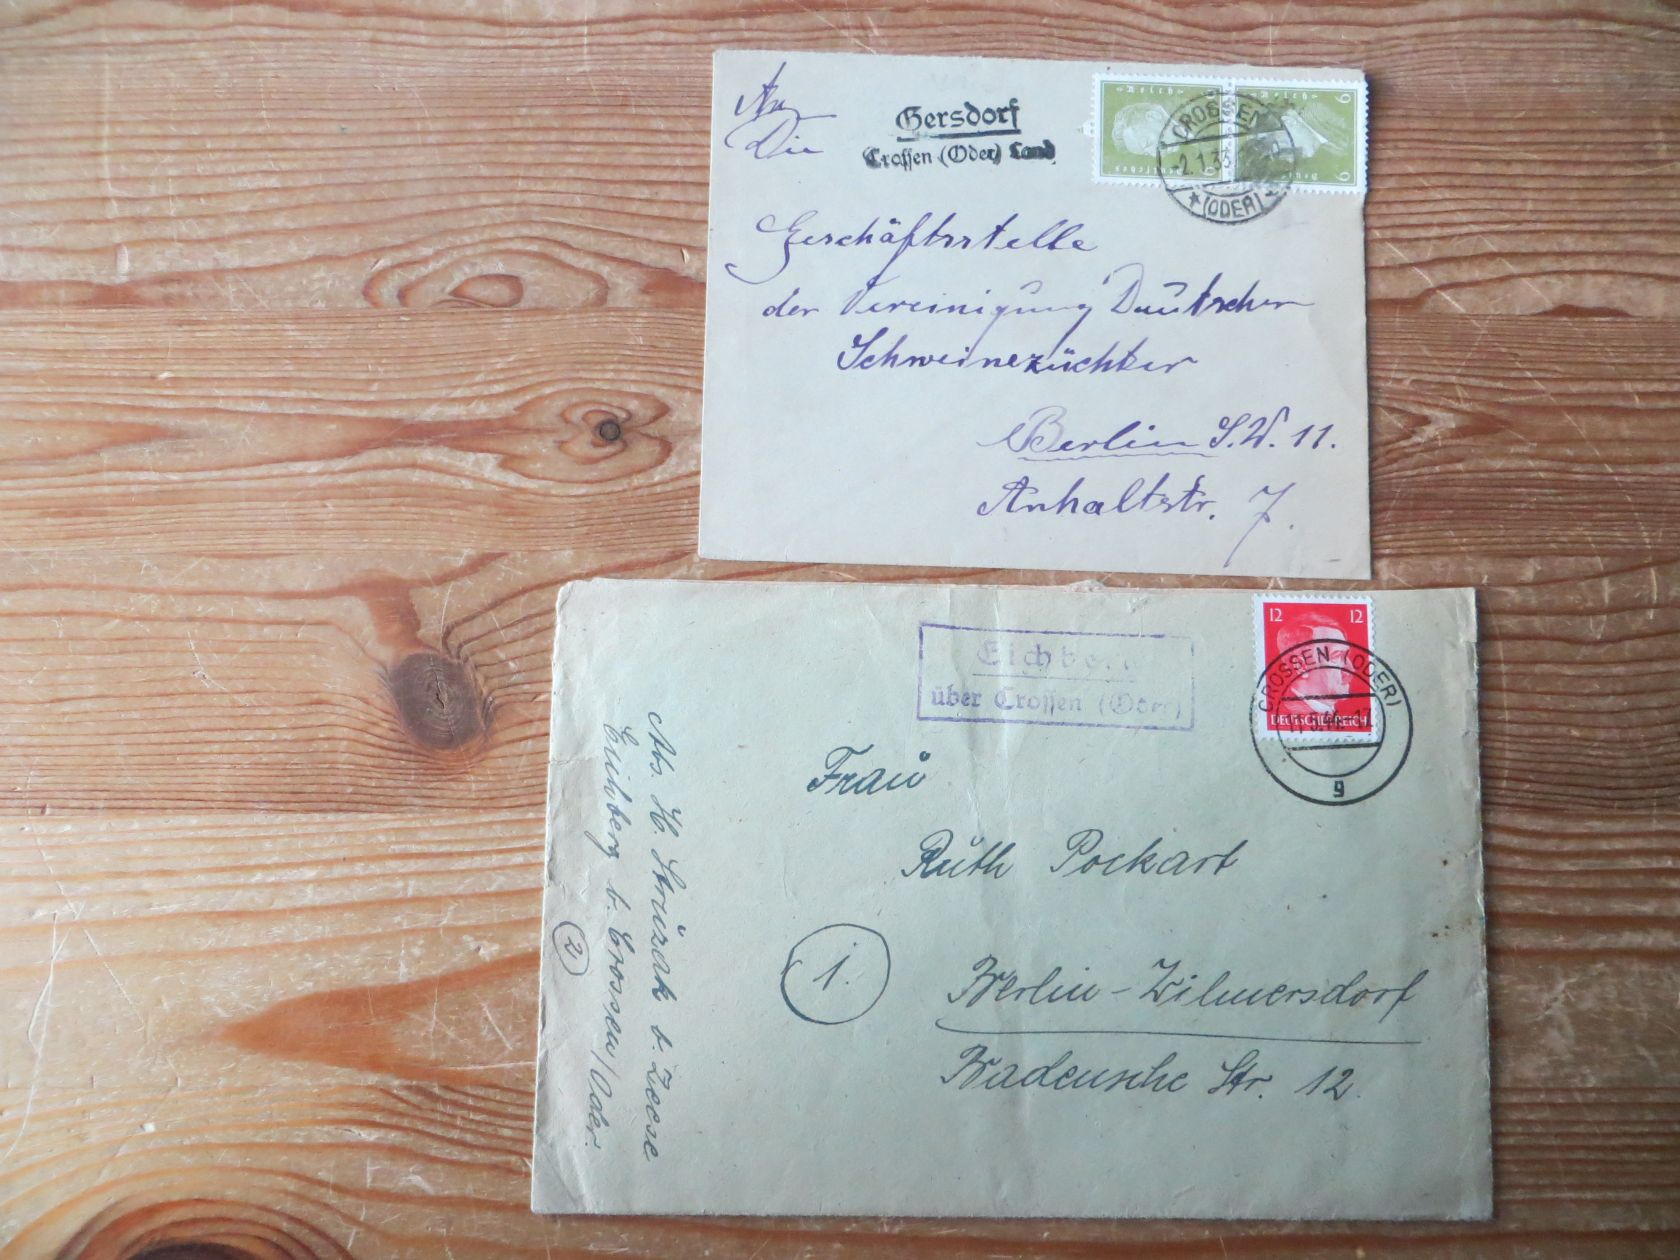 An
Die
Gersdorf
Crossen (Oder) Land
6 6
Deutsches Reich
CROSSEN
-2.1.33
(ODER)
Geschäftsstelle
der Vereinigung Deutscher
Schweinezüchter
Berlin S.W. 11.
Anhaltstr. 7.
Eichberg
über Crossen (Oder)
12 12
DEUTSCHES REICH
CROSSEN (ODER)
g
Frau
Ruth Pockart
1.
Berlin-Wilmersdorf
Badensche Str. 12.
Abs. H. Struzak b. Zeese
Eichberg b. Crossen/Oder.
2